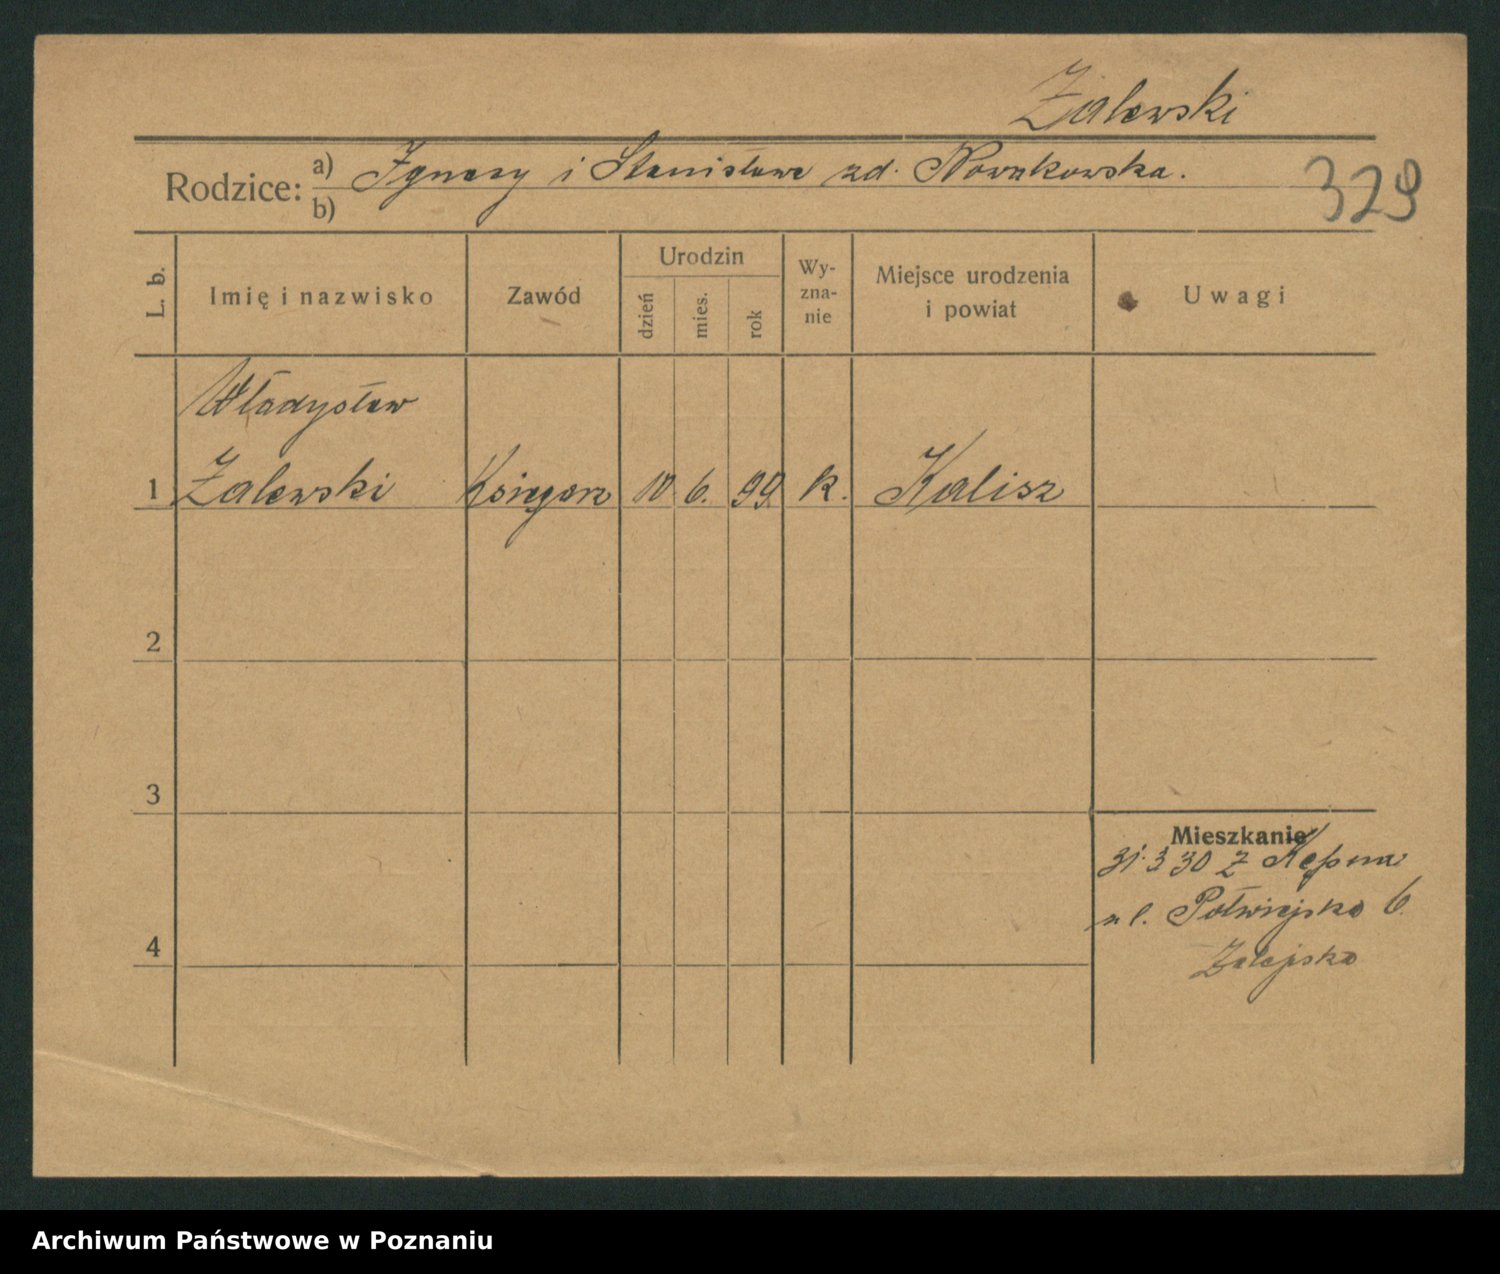 Zalewski
Rodzice: a) Ignacy i Stanisława zd. Nowakowska.
b)
329
L. b. Imię i nazwisko Zawód Urodzin dzień mies. rok Wy-zna-nie Miejsce urodzenia i powiat Uwagi
Władysław
1 Zalewski Księgarz 10. 6. 99. k. Kalisz
2
3
Mieszkanie
31. 3 30 z Kępna
ul. Półwiejska 6.
4
Archiwum Państwowe w Poznaniu